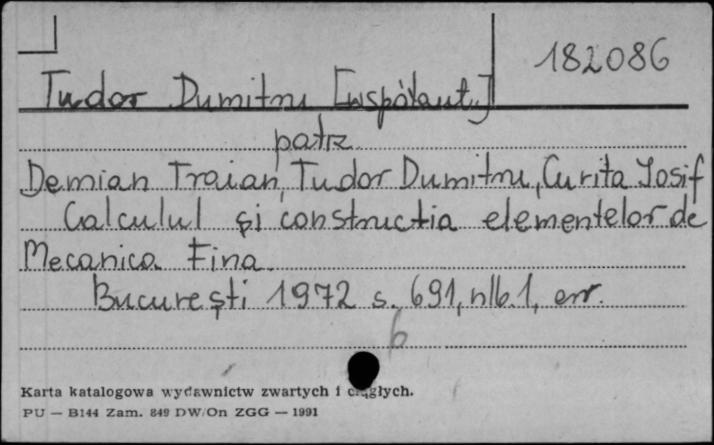 182086
Tudor Dumitru [współaut.]
patrz
Demian Traian, Tudor Dumitru, Curita Iosif
Calculul și constructia elementelor de
Mecanica Fina.
București 1972 s. 691, nlb. 1, err.
b
Karta katalogowa wydawnictw zwartych i ciągłych.
PU — B144 Zam. 849 DW/On ZGG — 1991